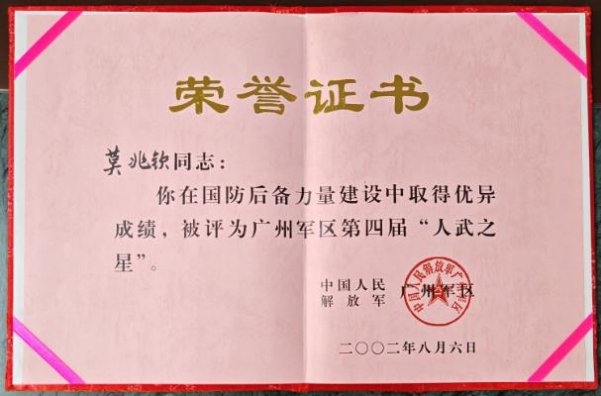 荣誉证书
莫兆钦同志：
你在国防后备力量建设中取得优异
成绩，被评为广州军区第四届“人武之
星”。
中国人民
解放军
广州军区
中国人民解放军广州军区
二〇〇二年八月六日